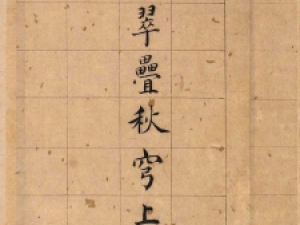 翠疊秋穹上